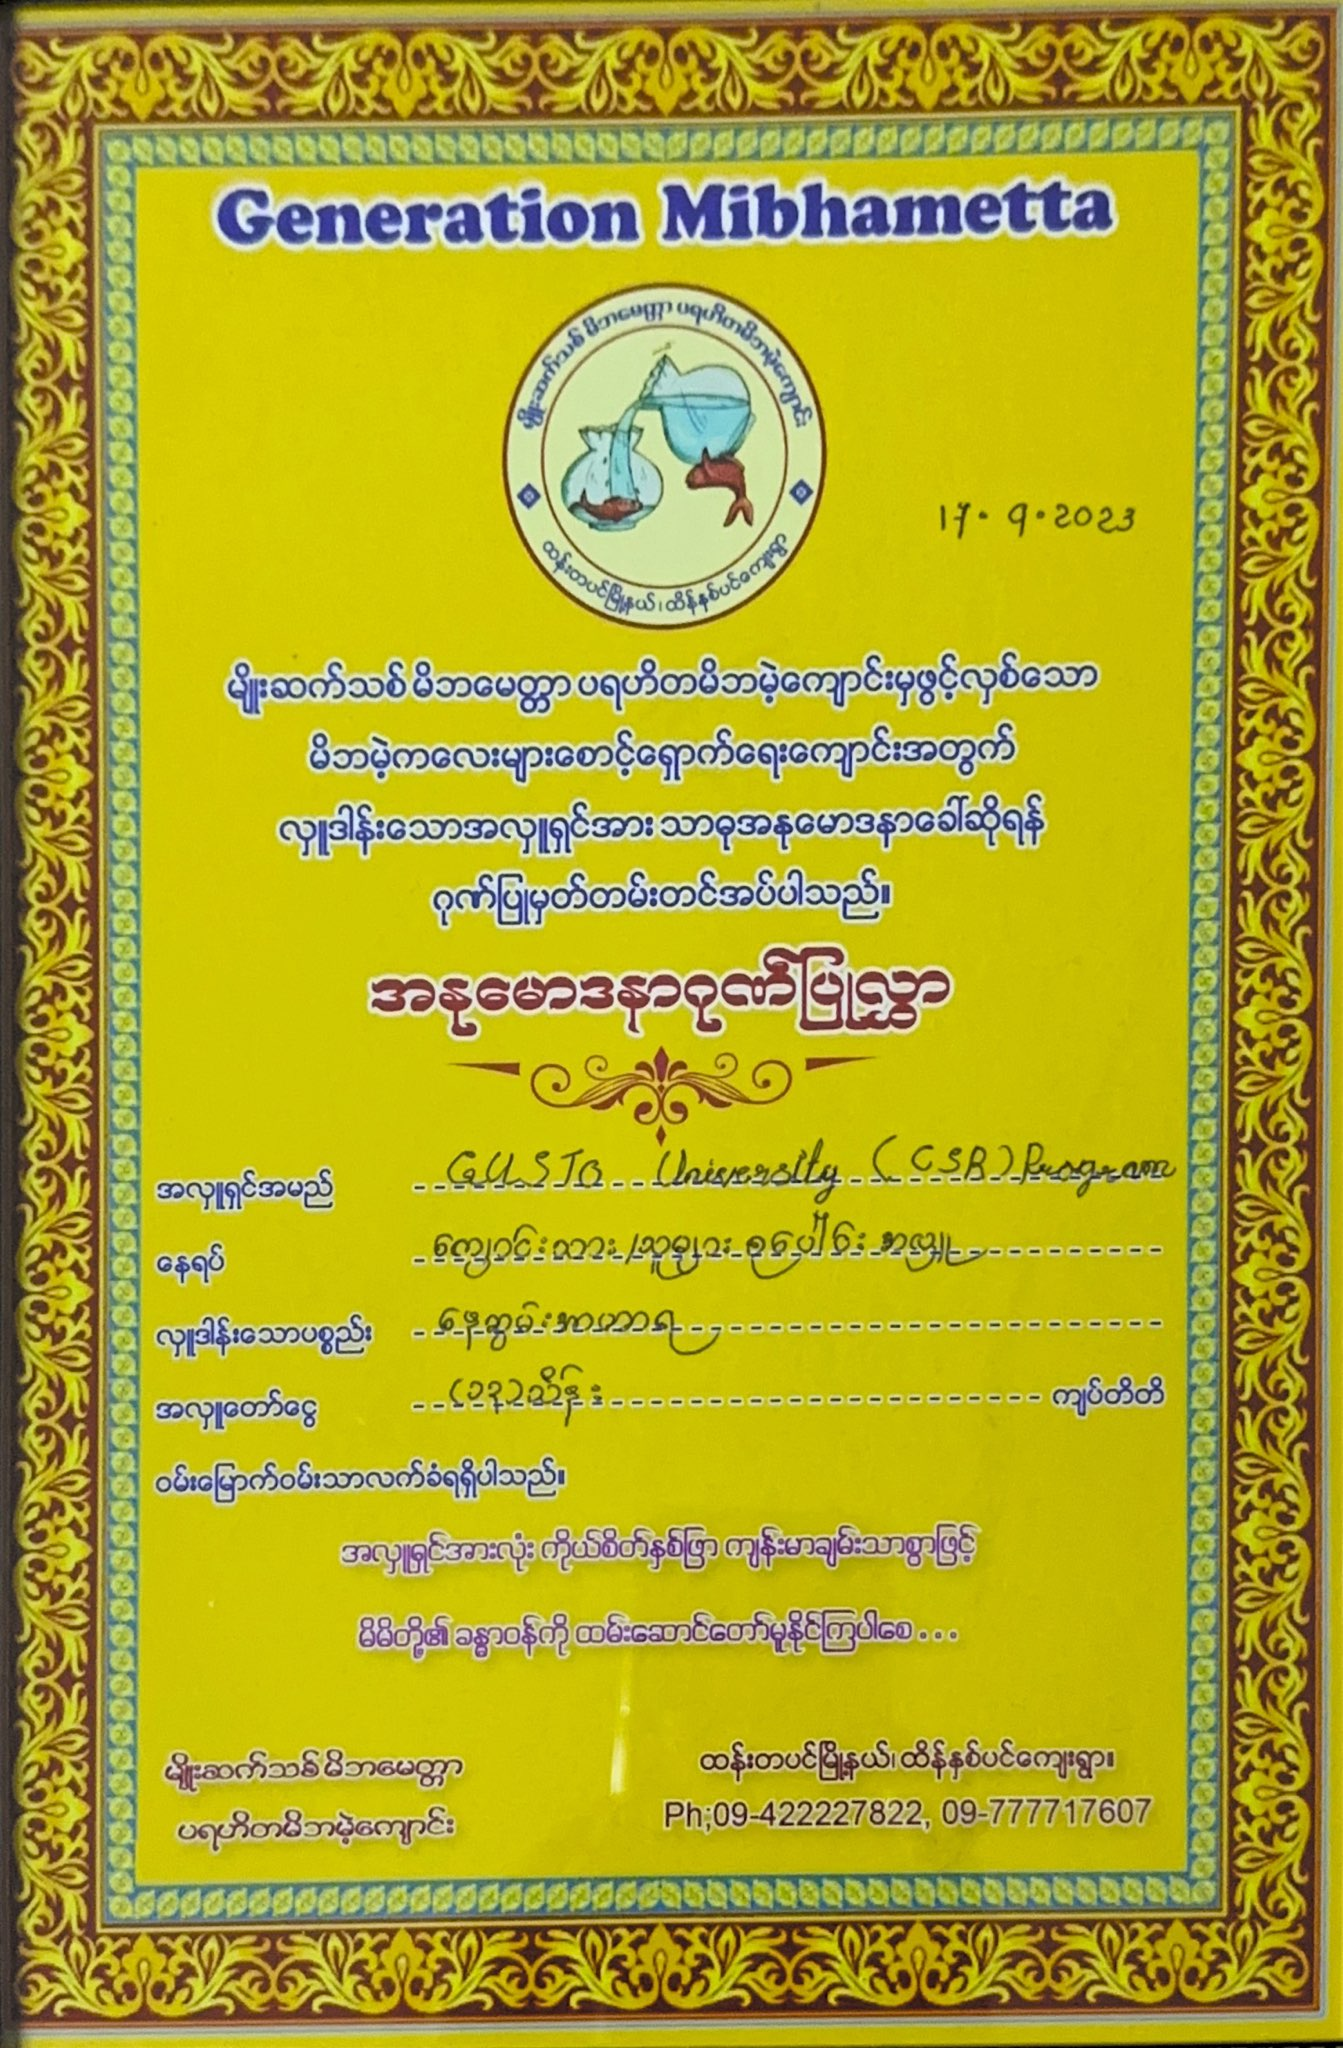 Generation Mibhametta
မျိုးဆက်သစ် မိဘမေတ္တာ ပရဟိတမိဘမဲ့ကျောင်း
ထန်းတပင်မြို့နယ်၊ ထိန်နှစ်ပင်ကျေးရွာ
17. 9. 2023
မျိုးဆက်သစ် မိဘမေတ္တာ ပရဟိတမိဘမဲ့ကျောင်းမှဖွင့်လှစ်သော
မိဘမဲ့ကလေးများစောင့်ရှောက်ရေးကျောင်းအတွက်
လှူဒါန်းသောအလှူရှင်အား သာဓုအနုမောဒနာခေါ်ဆိုရန်
ဂုဏ်ပြုမှတ်တမ်းတင်အပ်ပါသည်။
အနုမောဒနာဂုဏ်ပြုလွှာ
အလှူရှင်အမည် GUSTO University (CSR) Program
နေရပ် ကျောင်းသား/သူများ စုပေါင်း အလှူ
လှူဒါန်းသောပစ္စည်း နေ့ဆွမ်းအာဟာရ
အလှူတော်ငွေ သိန်း ကျပ်တိတိ
ဝမ်းမြောက်ဝမ်းသာလက်ခံရရှိပါသည်။
အလှူရှင်အားလုံး ကိုယ်စိတ်နှစ်ဖြာ ကျန်းမာချမ်းသာစွာဖြင့်
မိမိတို့၏ ခန္ဓာဝန်ကို ထမ်းဆောင်တော်မူနိုင်ကြပါစေ...
မျိုးဆက်သစ် မိဘမေတ္တာ
ပရဟိတမိဘမဲ့ကျောင်း
ထန်းတပင်မြို့နယ်၊ ထိန်နှစ်ပင်ကျေးရွာ။
Ph;09-422227822, 09-777717607